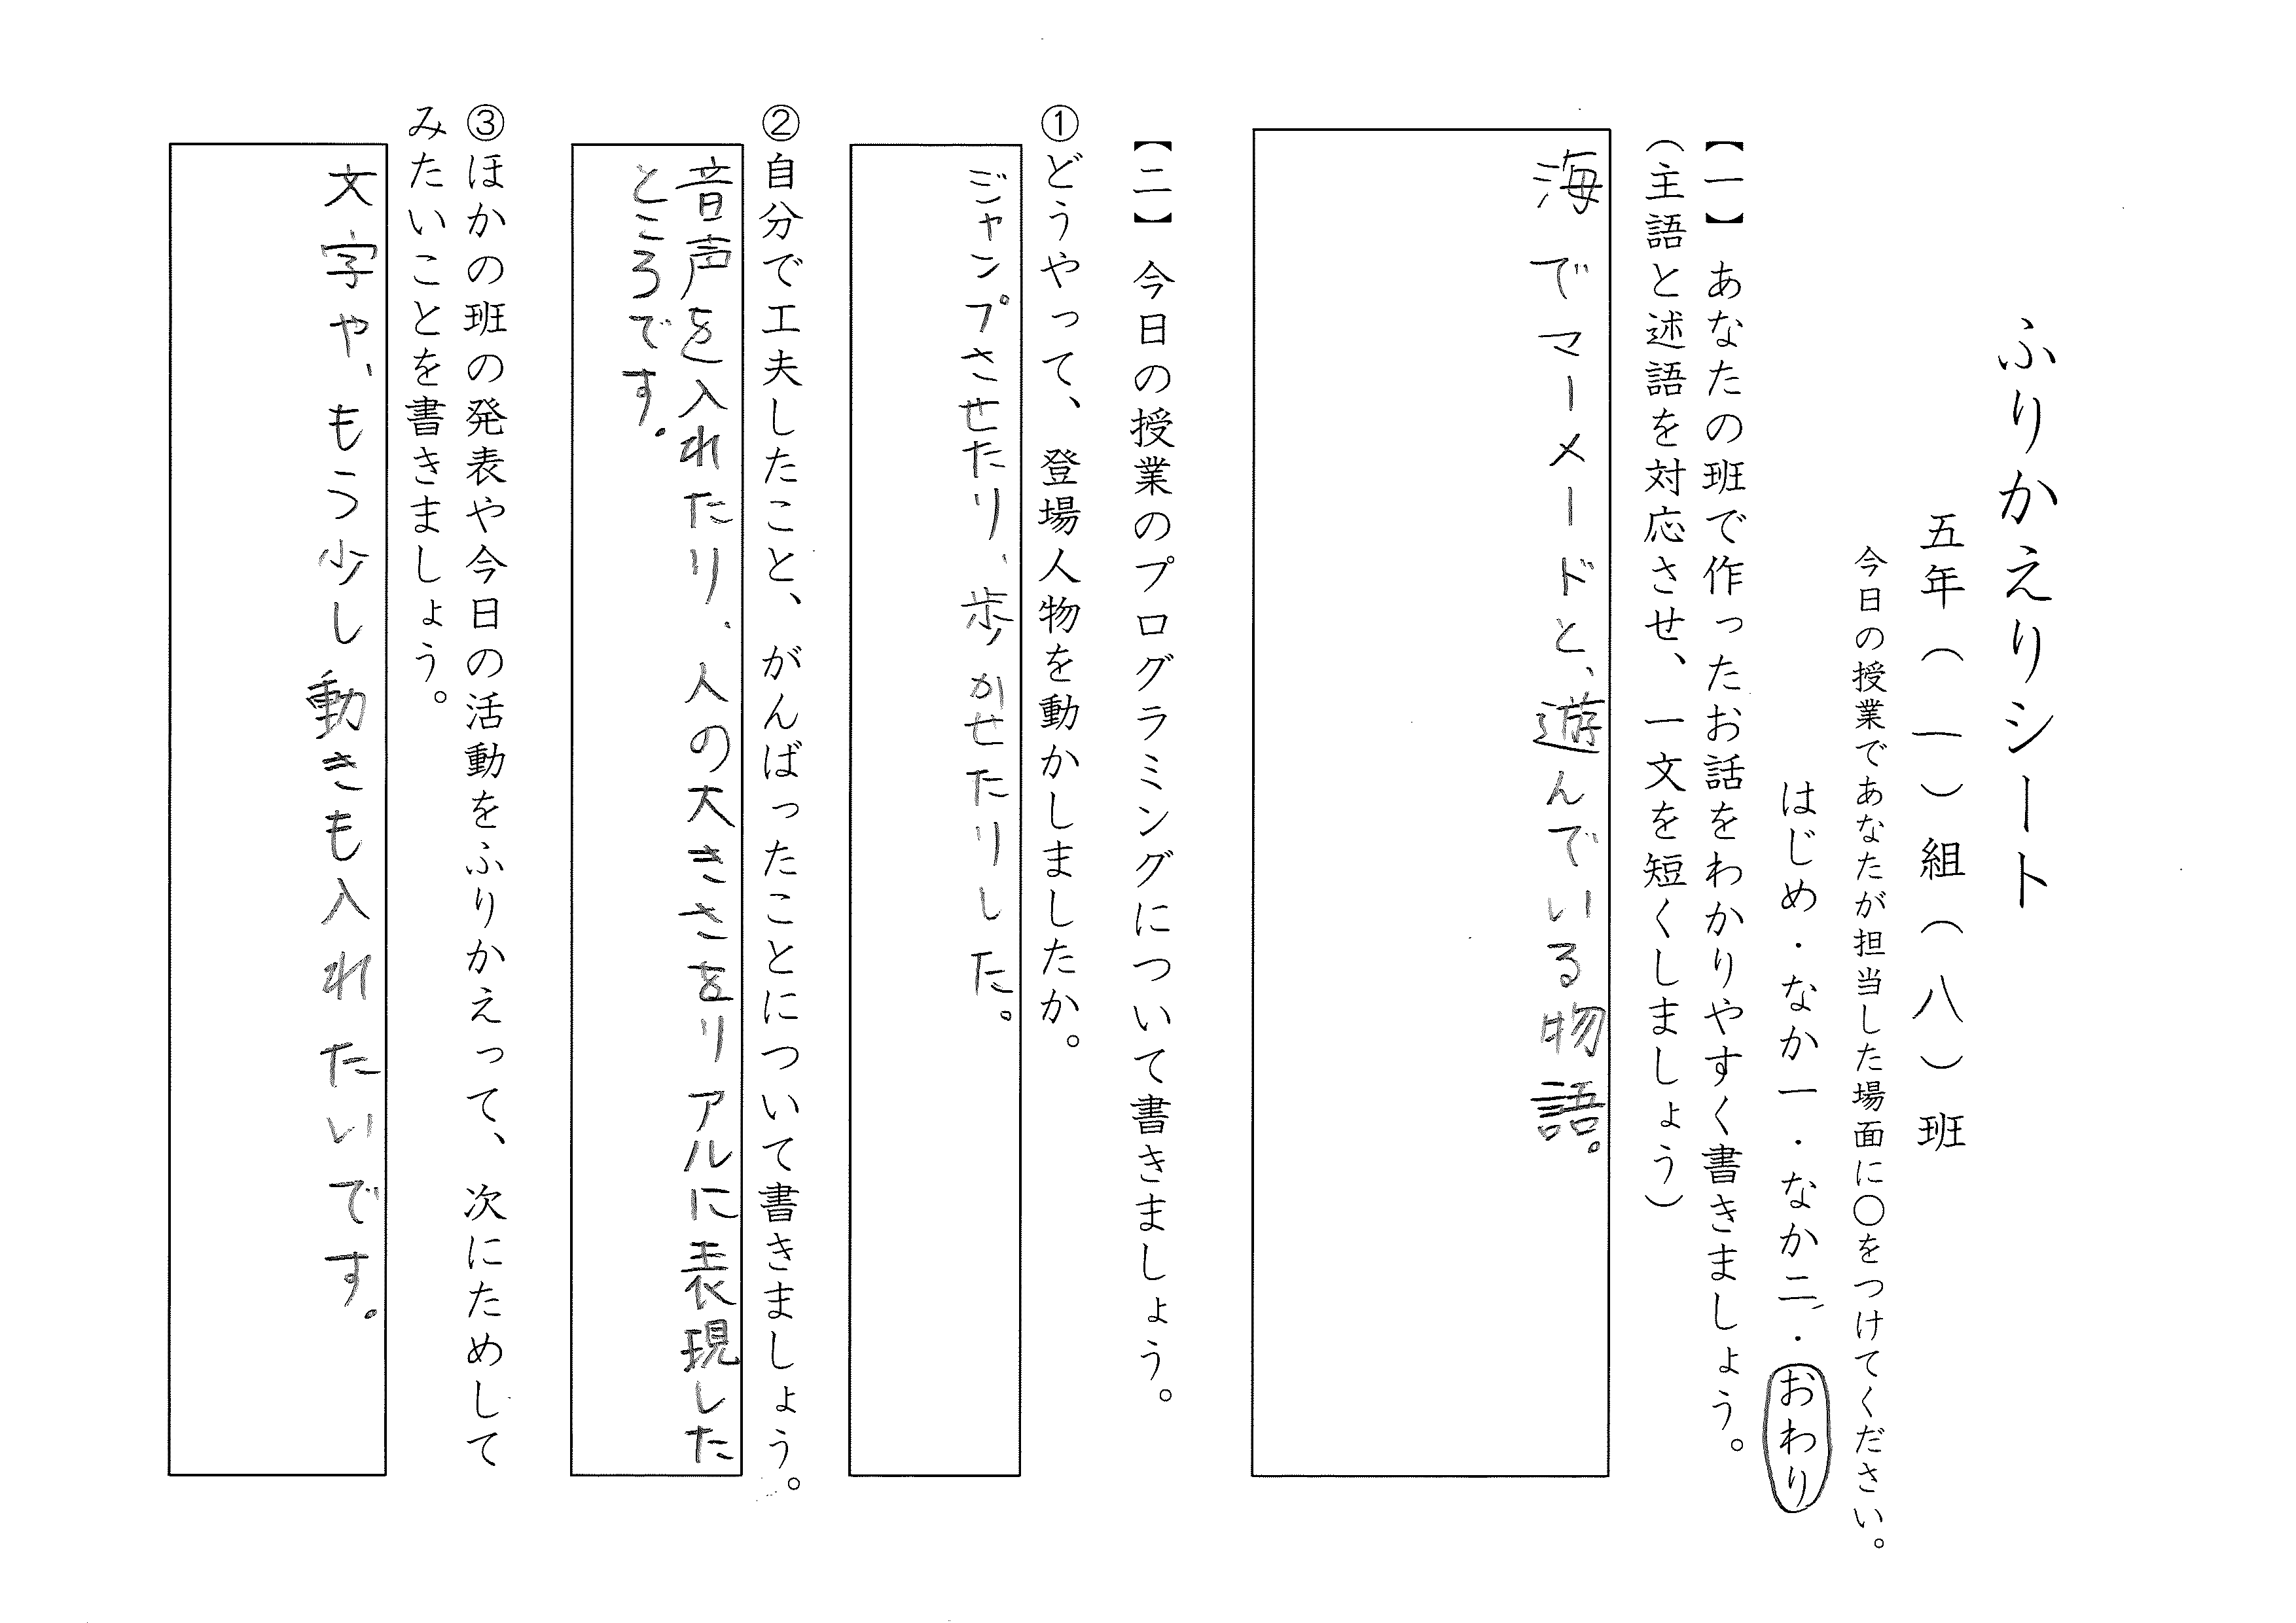 ふりかえりシート
五年（一）組（八）班
今日の授業であなたが担当した場面に〇をつけてください。
はじめ・なか一・なか二・おわり
【一】あなたの班で作ったお話をわかりやすく書きましょう。
（主語と述語を対応させ、一文を短くしましょう）
海でマーメードと、遊んでいる物語。
【二】今日の授業のプログラミングについて書きましょう。
①どうやって、登場人物を動かしましたか。
ジャンプさせたり、歩かせたりした。
②自分で工夫したこと、がんばったことについて書きましょう。
音声を入れたり、人の大きさをリアルに表現した
ところです。
③ほかの班の発表や今日の活動をふりかえって、次にためして
みたいことを書きましょう。
文字や、もう少し動きも入れたいです。